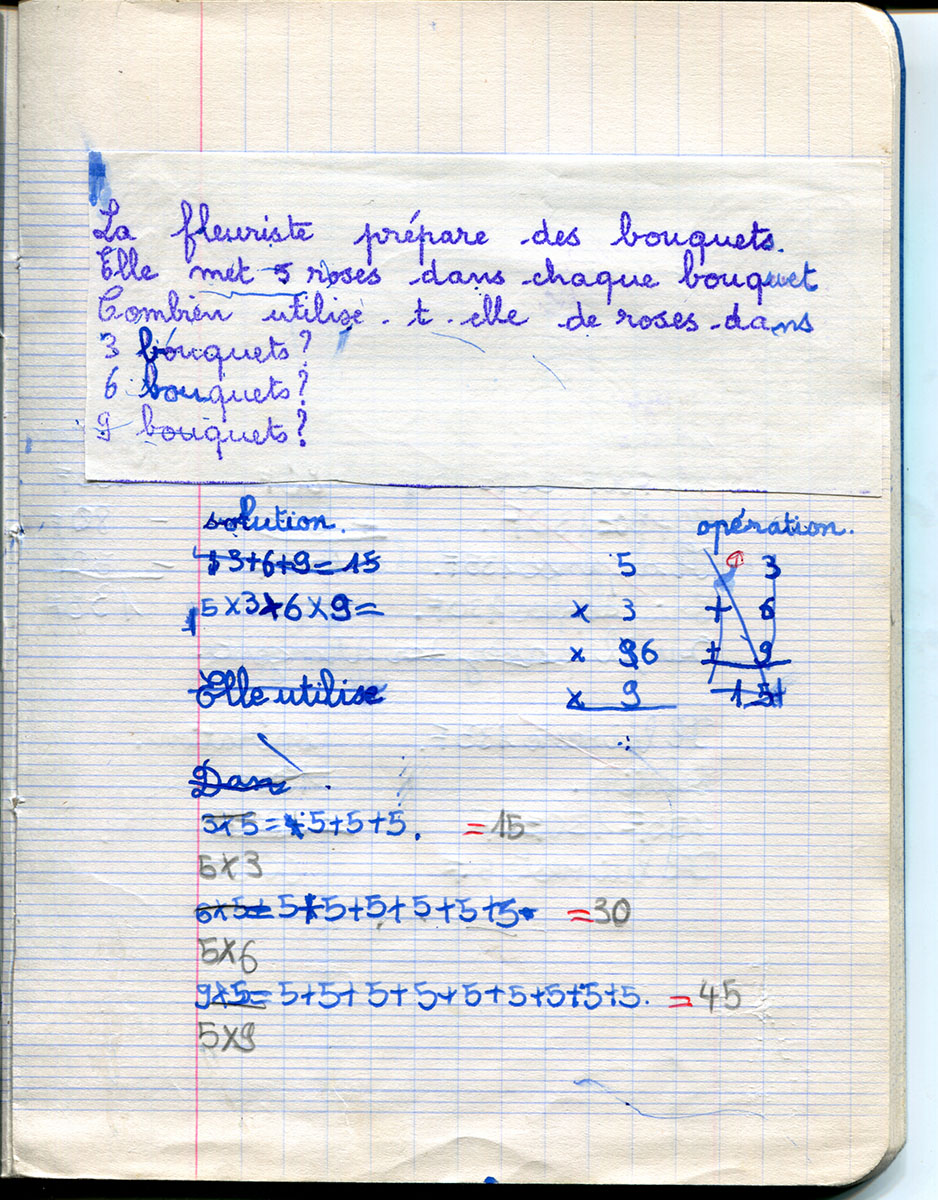 La fleuriste prépare des bouquets.
Elle met 5 roses dans chaque bouquet
Combien utilise-t-elle de roses dans
3 bouquets?
6 bouquets?
9 bouquets?
solution. opération.
3+6+9=15
5×3×6×9=
Elle utilise
5
× 3
× 6
× 9
3
+ 6
+ 9
15
Dans
3×5=5+5+5. =15
5×3
6×5=5+5+5+5+5+5. =30
5×6
9×5=5+5+5+5+5+5+5+5+5. =45
5×9